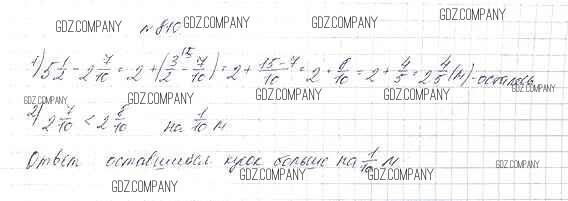 № 810
1) 5 1/2 - 2 7/10 = 2 + (3/2 ¹⁵ - 7/10) = 2 + 15-7/10 = 2 + 8/10 = 2 + 4/5 = 2 4/5 (м) - осталось
2) 2 7/10 < 2 8/10 на 1/10 м
Ответ оставшийся кусок больше на 1/10 м
GDZ.COMPANY
GDZ.COMPANY
GDZ.COMPANY
GDZ.COMPANY
GDZ.COMPANY
GDZ.COMPANY
GDZ.COMPANY
GDZ.COMPANY
GDZ.COMPANY
GDZ.COMPANY
GDZ.COMPANY
GDZ.COMPANY
GDZ.COMPANY
GDZ.COMPANY